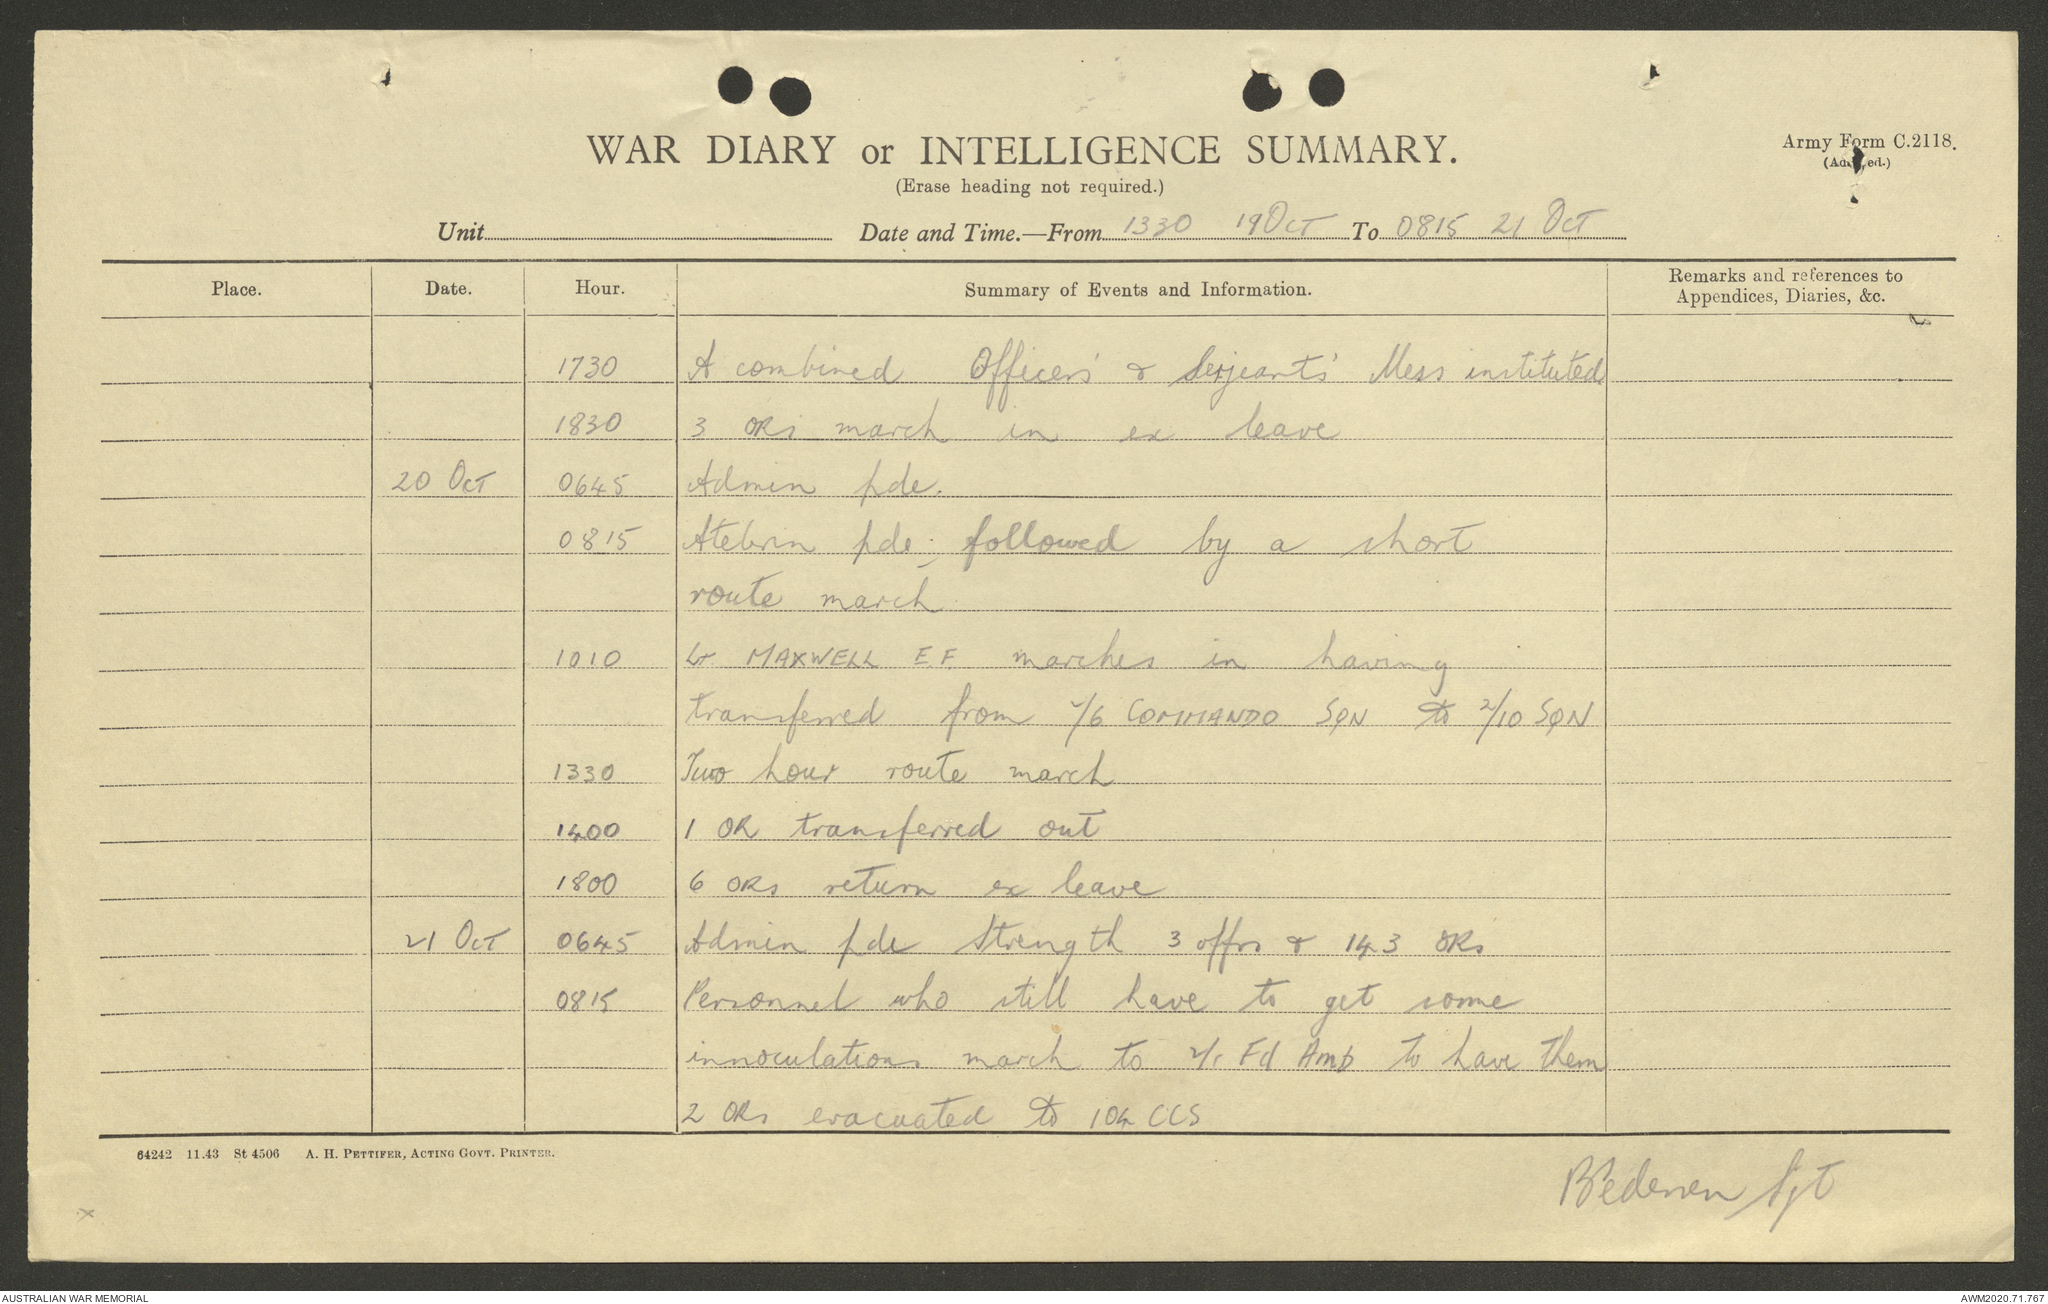 WAR DIARY or INTELLIGENCE SUMMARY.
Army Form C.2118.
(Erase heading not required.)
Unit Date and Time.—From 1330 19 Oct To 0815 21 Oct
Place. Date. Hour. Summary of Events and Information. Remarks and references to
Appendices, Diaries, &c.
1730 A combined Officers' & Serjeants' Mess instituted.
1830 3 ORs march in ex leave
20 Oct 0645 Admin pde.
0815 Atebrin pde; followed by a short
route march
1010 Lt MAXWELL E F marches in having
transferred from 2/6 COMMANDO SQN to 2/10 SQN
1330 Two hour route march
1400 1 OR transferred out
1800 6 ORs return ex leave
21 Oct 0645 Admin pde Strength 3 offrs & 143 ORs
0815 Personnel who still have to get some
innoculations march to Fd Amb to have them
2 ORs evacuated to 104 CCS
64242 11.43 St 4506 A. H. PETTIFER, ACTING GOVT. PRINTER.
Sgt
AUSTRALIAN WAR MEMORIAL
AWM2020.71.767